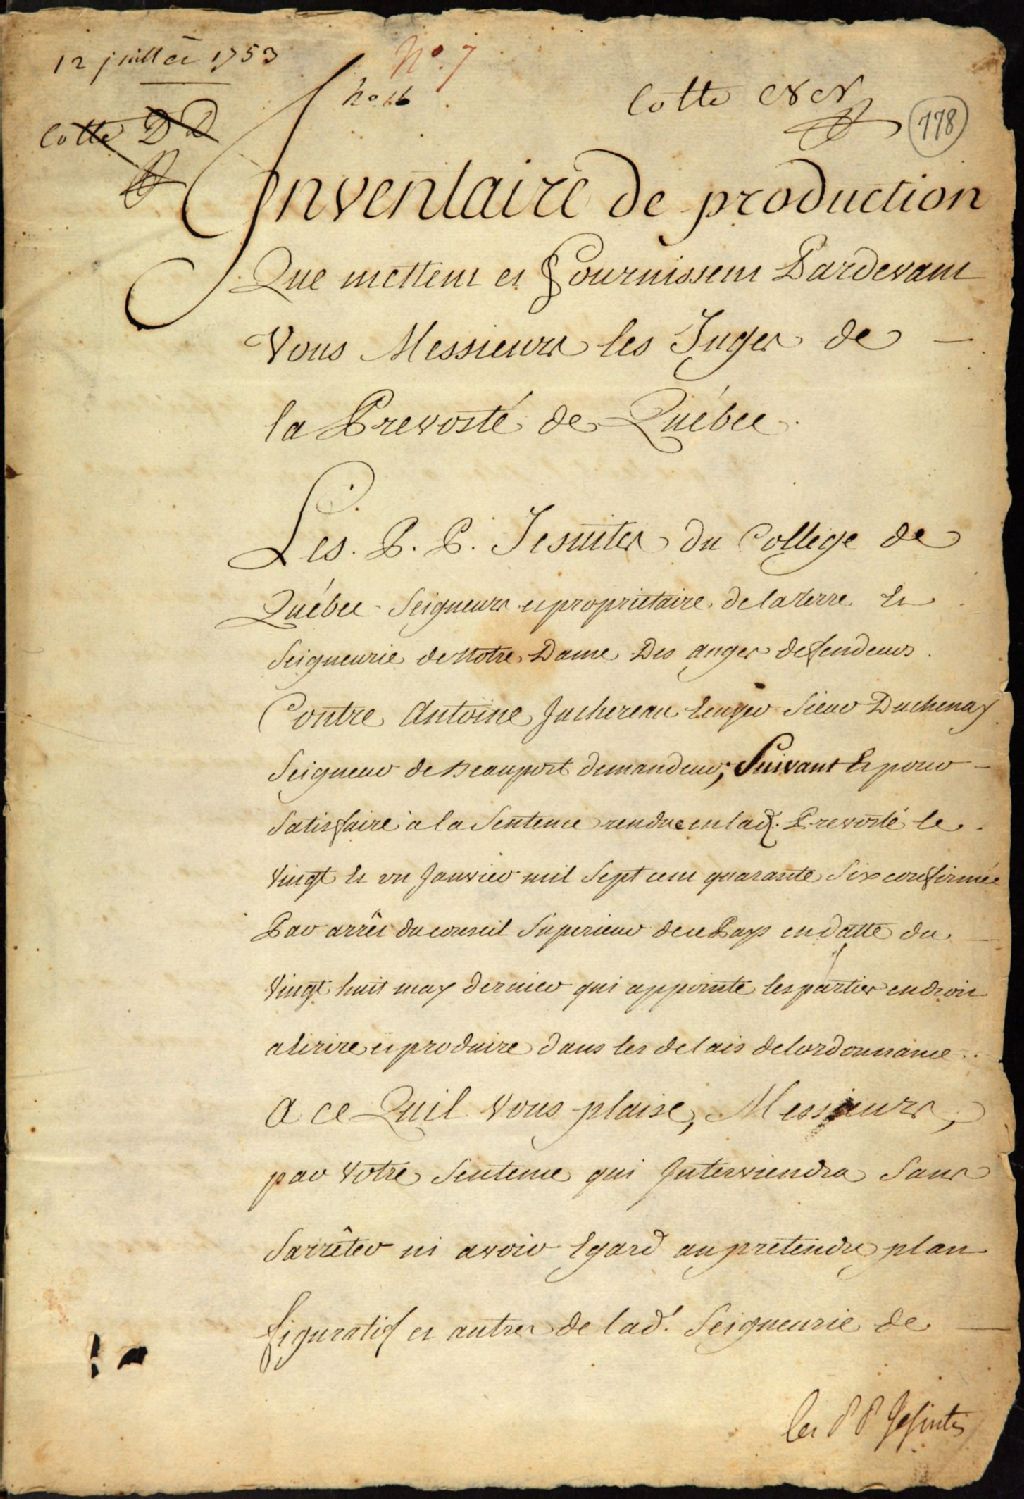 12 juillet 1753
No. 7
No 16
Cotte
178
Cotte DD
Inventaire de production
Que mettent et fournissent Pardevant
Vous Messieurs les Juges de
la Prevosté de Québec.
Les. P. P. Jesuites du College de
Québec Seigneurs et proprietaire de la terre Et
Seigneurie de Notre Dame Des anges defendeurs.
Contre Antoine Juchereau Ecuyer Sieur Duchenay
Seigneur de Beauport demandeur, Suivant Et pour
Satisfaire a la Sentence rendue en lad. Prevosté le
Vingt Et un Janvier mil Sept cent quarante Six confirmée
Par arrêt du conseil Superieur de ce Pays en datte du
Vingt huit may dernier qui appointe les parties en droit
a Ecrire et produire dans les delais de lordonnance.
A ce Quil Vous plaise, Messieurs,
par Votre Sentence qui Interviendra Sans
Sarrêter ni avoir Egard au pretendu plan
figuratif et autres de lad. Seigneurie de
les PP Jesuites